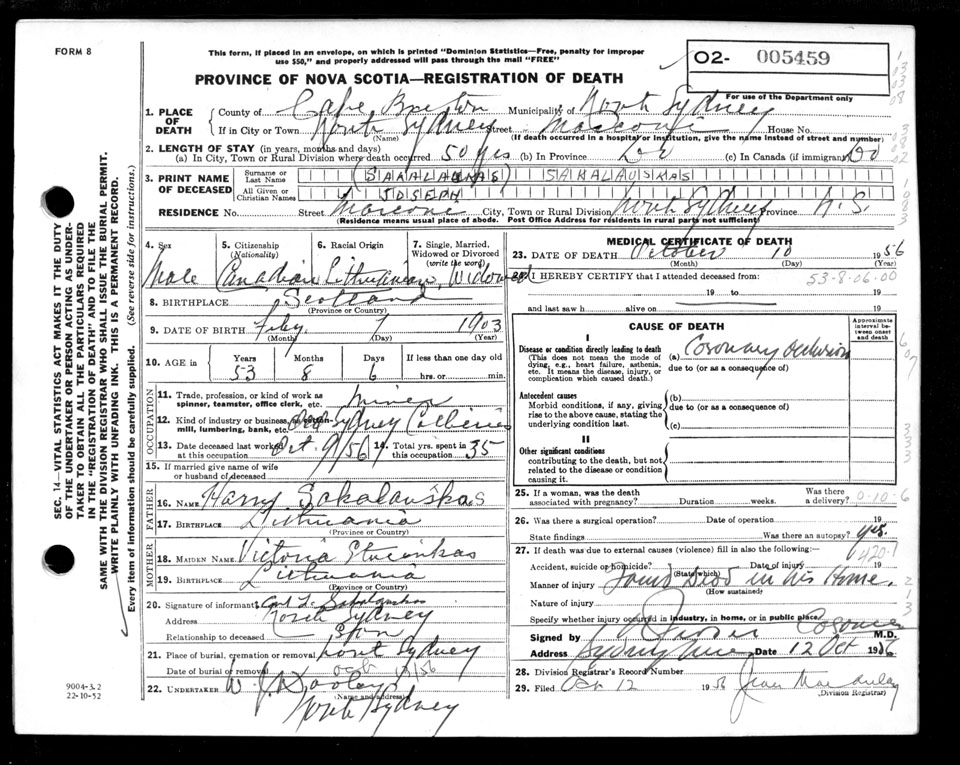 FORM 8
This form, if placed in an envelope, on which is printed "Dominion Statistics—Free, penalty for improper
use $50," and properly addressed will pass through the mail "FREE"
O2- 005459
PROVINCE OF NOVA SCOTIA—REGISTRATION OF DEATH
For use of the Department only
1. PLACE OF DEATH
County of Cape Breton Municipality of North Sydney
If in City or Town North Sydney Street Marconi House No.
(Name) (If death occurred in a hospital or institution, give the name instead of street and number)
2. LENGTH OF STAY (in years, months and days)
(a) In City, Town or Rural Division where death occurred 50 yrs (b) In Province Do (c) In Canada (if immigrant) Do
3. PRINT NAME OF DECEASED
Surname or Last Name (SAKALAUKAS) SAKALAUSKAS
All Given or Christian Names JOSEPH
RESIDENCE No. Street Marconi City, Town or Rural Division North Sydney Province N.S.
(Residence means usual place of abode. Post Office Address for residents in rural parts not sufficient)
4. Sex Male
5. Citizenship (Nationality) Canadian
6. Racial Origin Lithuanian
7. Single, Married, Widowed or Divorced (write the word) Widowed
8. BIRTHPLACE Scotland
(Province or Country)
9. DATE OF BIRTH Feby. 7 1903
(Month) (Day) (Year)
10. AGE in Years 53 Months 8 Days 6 If less than one day old hrs. or min.
OCCUPATION
11. Trade, profession, or kind of work as spinner, teamster, office clerk, etc. Miner
12. Kind of industry or business, mill, lumbering, bank, etc. Sydney Collieries
13. Date deceased last worked at this occupation Oct. 9/56
14. Total yrs. spent in this occupation 35
15. If married give name of wife or husband of deceased
FATHER
16. Name Harry Sakalauskas
17. Birthplace Lithuania
(Province or Country)
MOTHER
18. MAIDEN NAME Victoria
19. BIRTHPLACE Lithuania
(Province or Country)
20. Signature of informant
Address North Sydney
Relationship to deceased Son
21. Place of burial, cremation or removal North Sydney
Date of burial or removal Oct /56
22. UNDERTAKER W. J. Dooley
(Name and address)
North Sydney
MEDICAL CERTIFICATE OF DEATH
23. DATE OF DEATH October 10 1956
(Month) (Day) (Year)
I HEREBY CERTIFY that I attended deceased from:
53-8-06-00
19 to 19
and last saw h alive on 19
CAUSE OF DEATH
Approximate interval between onset and death
I
Disease or condition directly leading to death
(This does not mean the mode of dying, e.g., heart failure, asthenia, etc. It means the disease, injury, or complication which caused death.)
(a) Coronary Occlusion
due to (or as a consequence of)
Antecedent causes
Morbid conditions, if any, giving rise to the above cause, stating the underlying condition last.
(b)
due to (or as a consequence of)
(c)
II
Other significant conditions
contributing to the death, but not related to the disease or condition causing it.
25. If a woman, was the death associated with pregnancy? Duration weeks. Was there a delivery?
0-10-6
26. Was there a surgical operation? Date of operation 19
State findings Was there an autopsy? yes.
27. If death was due to external causes (violence) fill in also the following:—
420.1
Accident, suicide or homicide? (State which) Date of injury 19
Manner of injury Found Dead in his Home.
(How sustained)
Nature of injury
Specify whether injury occurred in industry, in home, or in public place
Signed by Coroner M.D.
Address Sydney Mines Date 12 Oct 1956
28. Division Registrar's Record Number
29. Filed Oct 12 1956 Jean
(Division Registrar)
SEC. 14—VITAL STATISTICS ACT MAKES IT THE DUTY
OF THE UNDERTAKER OR PERSON ACTING AS UNDER-
TAKER TO OBTAIN ALL THE PARTICULARS REQUIRED
IN THE "REGISTRATION OF DEATH" AND TO FILE THE
SAME WITH THE DIVISION REGISTRAR WHO SHALL ISSUE THE BURIAL PERMIT.
WRITE PLAINLY WITH UNFADING INK. THIS IS A PERMANENT RECORD.
Every item of information should be carefully supplied. (See reverse side for instructions.)
9004-3.2
22-10-52